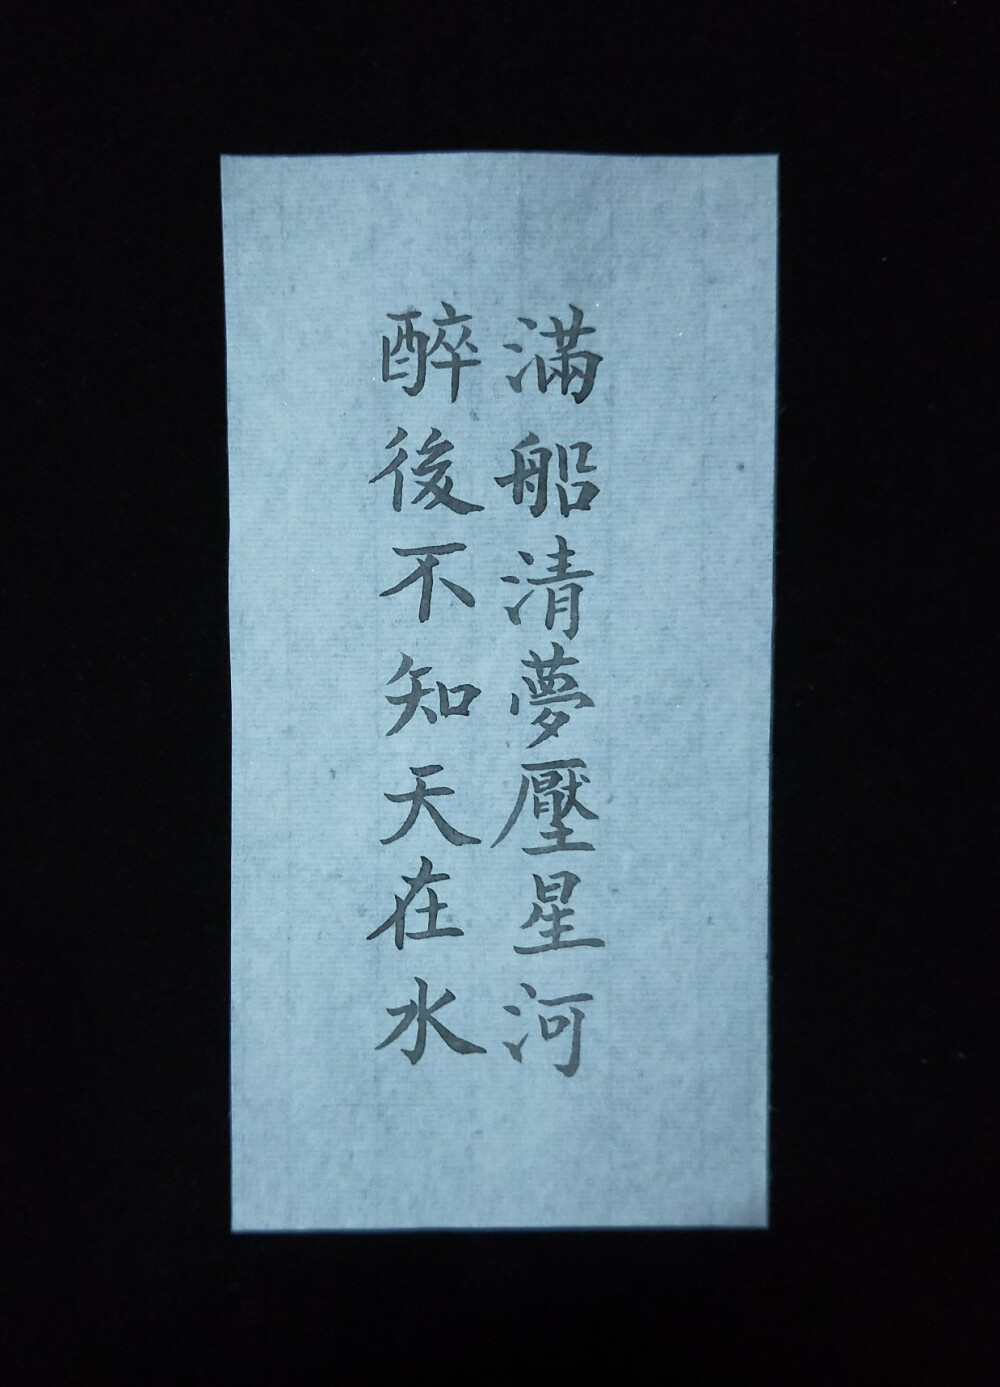 滿船清夢壓星河
醉後不知天在水